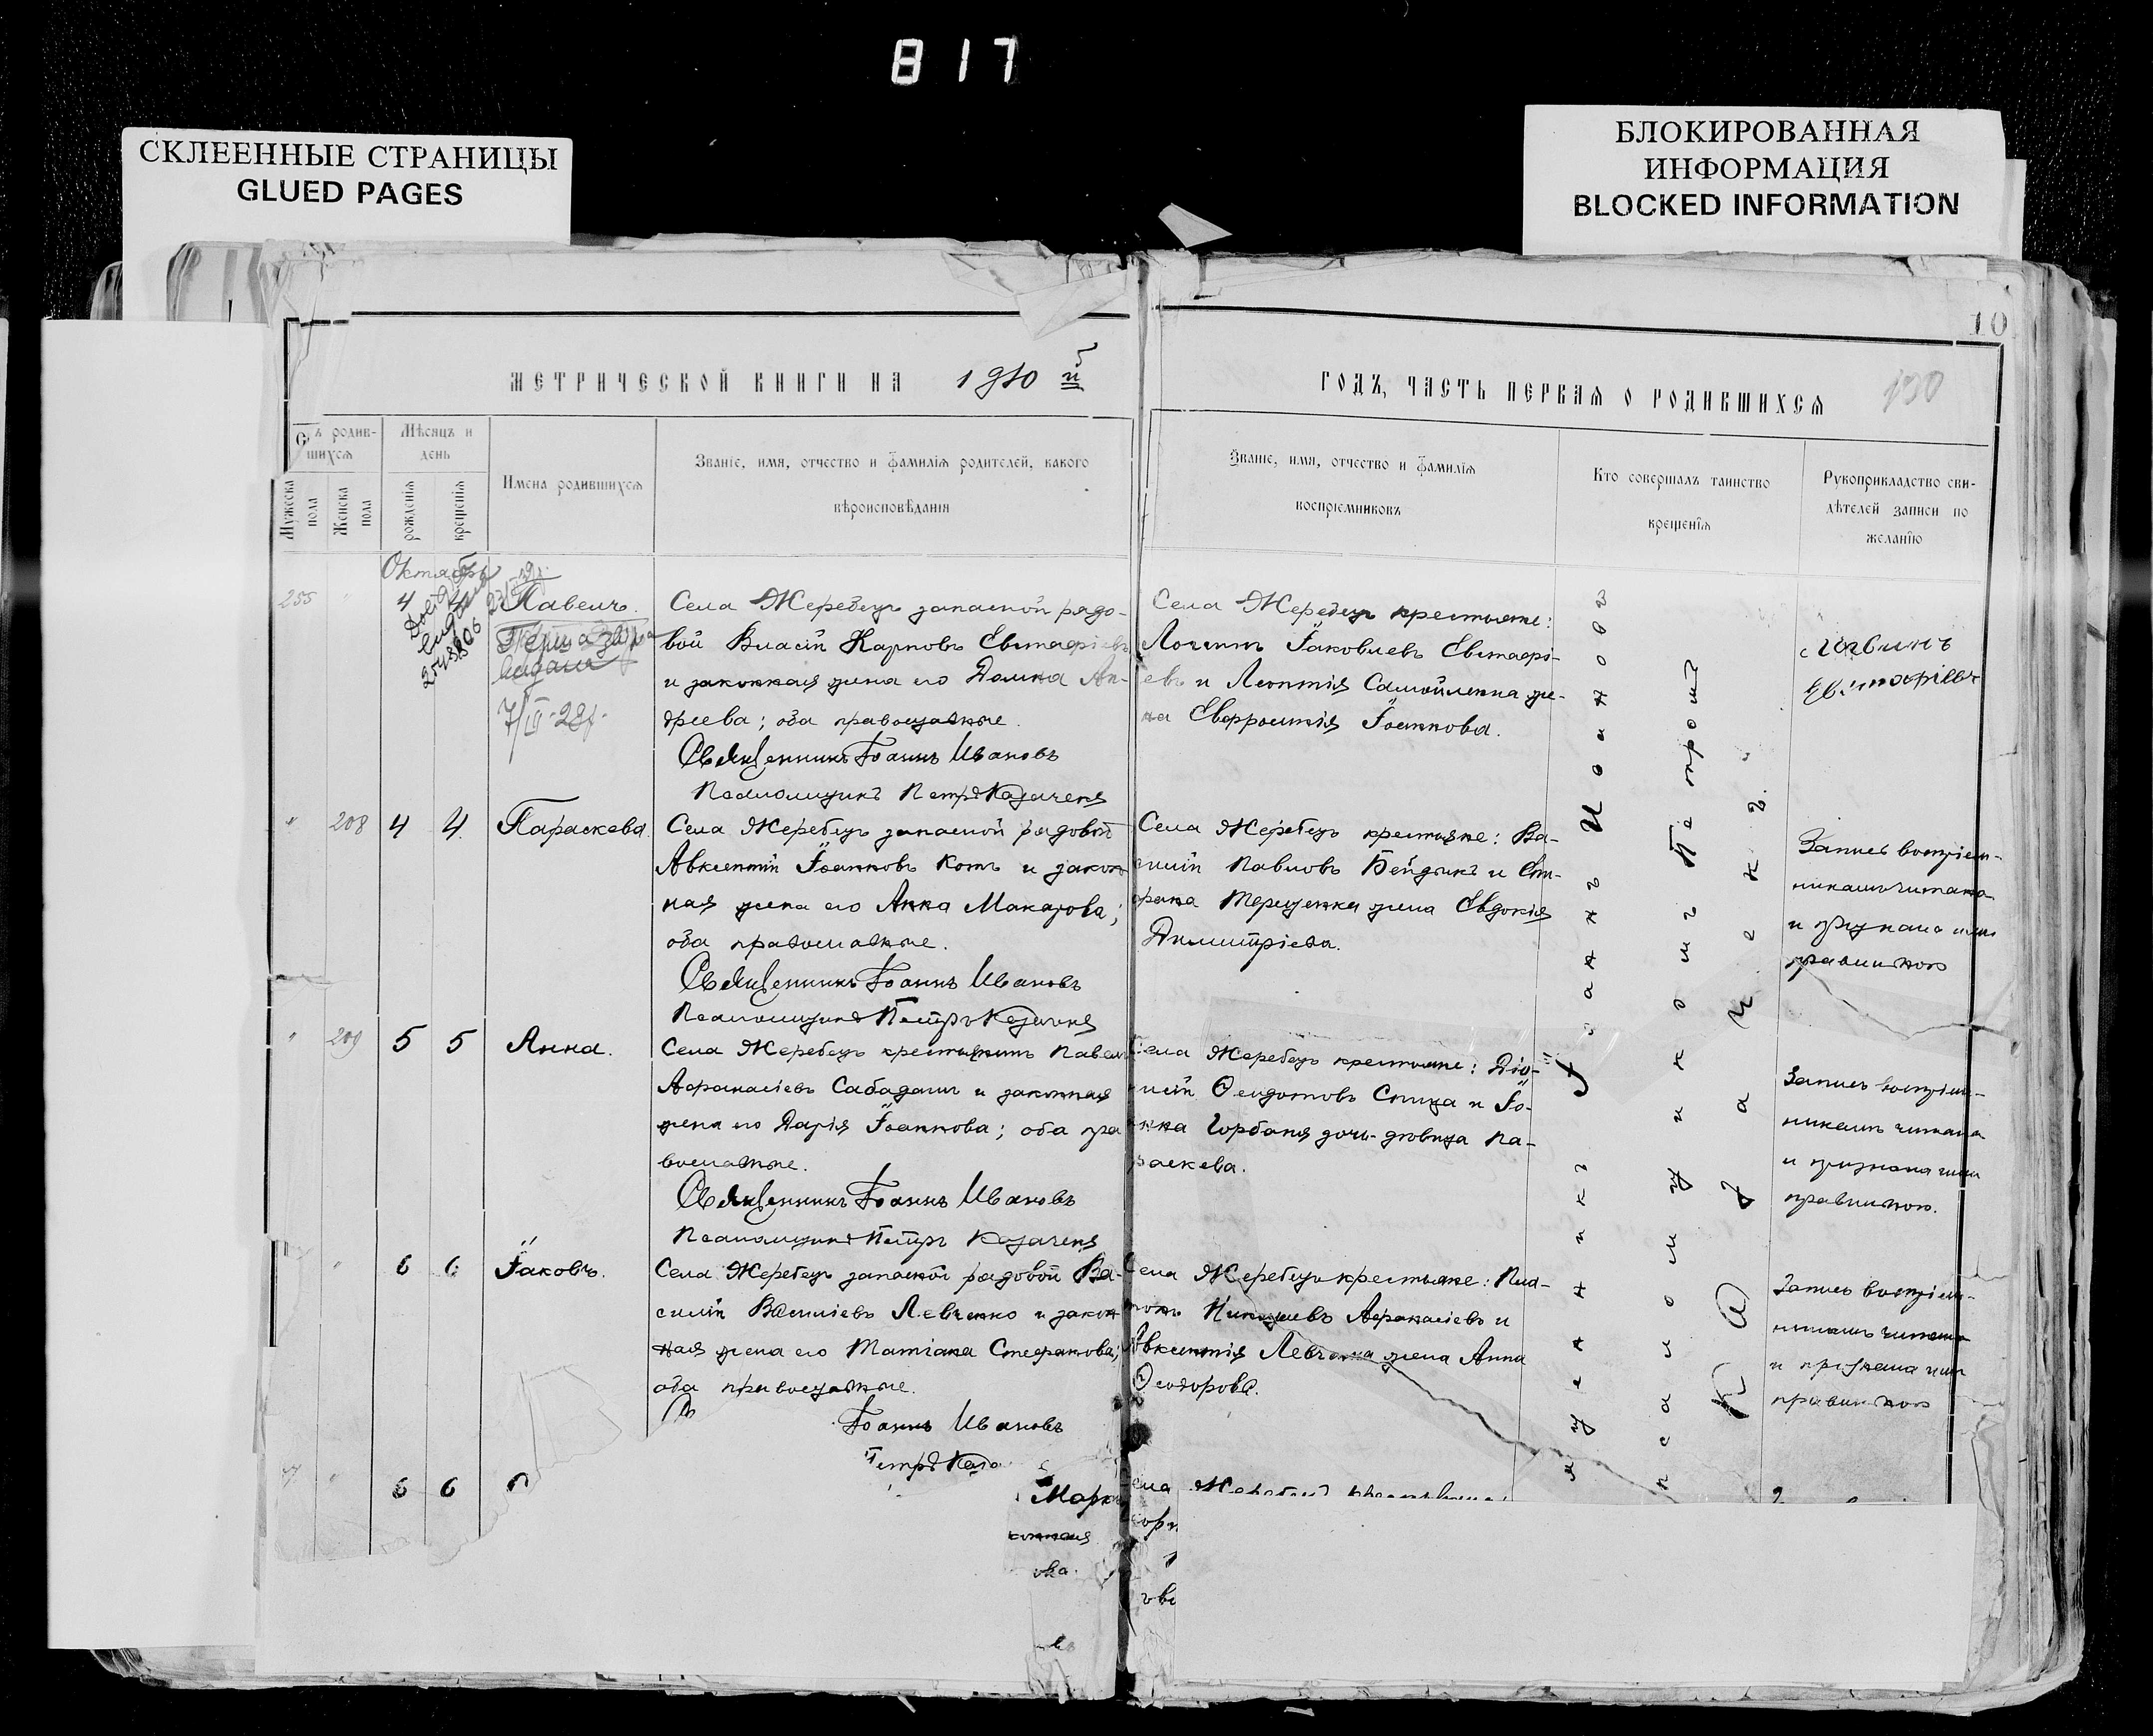 817
СКЛЕЕННЫЕ СТРАНИЦЫ
GLUED PAGES
БЛОКИРОВАННАЯ
ИНФОРМАЦИЯ
BLOCKED INFORMATION
10
МЕТРИЧЕСКОЙ КНИГИ НА 1910 й
ГОДЪ, ЧАСТЬ ПЕРВАЯ О РОДИВШИХСЯ
родив-
шихся
Мужеска
пола
Женска
пола
Мѣсяцъ и
день
рожденія
крещенія
Имена родившихся
Званіе, имя, отчество и фамилія родителей, какого
вѣроисповѣданія
Званіе, имя, отчество и фамилія
воспріемниковъ
Кто совершалъ таинство
крещенія
Рукоприкладство сви-
дѣтелей записи по
желанію
Октябрь
4 4 Павелъ.
7/III-28г.
Села Жеребецъ запасной рядо-
вой Власій Карповъ Евстафіевъ
и законная жена его Домна Ан-
дреева; оба православные.
Священникъ Іоаннъ Ивановъ
Псаломщикъ Петръ Казаченя
Села Жеребецъ крестьяне:
Логгинъ Іаковлевъ Евстафі-
евъ и Леонтія Самойленка же-
на Евфросинія Іоаннова.
Логвинъ
Евстафіевъ
208 4 4 Параскева.
Села Жеребецъ запасной рядовой
Авксентій Іоанновъ Котъ и закон
ная жена его Анна Макарова;
оба православные.
Священникъ Іоаннъ Ивановъ
Псаломщикъ Петръ Казаченя
Села Жеребецъ крестьяне: Ва-
силій Павловъ Бейдикъ и Сте-
фана Терещенка жена Евдокія
Димитріева.
Запись воспріем-
никамъ читана
и признана ими
правильною
209 5 5 Анна.
Села Жеребецъ крестьянинъ Павелъ
Афанасіевъ Сабадашъ и законная
жена его Дарія Іоаннова; оба пра
вославные.
Священникъ Іоаннъ Ивановъ
Псаломщикъ Петръ Казаченя
Села Жеребецъ крестьяне: Діо-
нисій Ѳеодотовъ Спица и Іо-
анна Горбаня дочь-дѣвица Па-
раскева.
Запись воспріем-
никамъ читана
и признана ими
правильною.
6 6 Іаковъ.
Села Жеребецъ запасной рядовой Ва-
силій Василіевъ Левченко и закон
ная жена его Татіана Стефанова;
оба православные.
Іоаннъ Ивановъ
Петръ Каза
Села Жеребецъ крестьяне: Пла-
тонъ Афанасіевъ и
Авксентія Левченка жена Анна
Ѳеодорова.
Запись воспріем-
никамъ читана
и признана ими
правильною
6 6
Марк
конная
ова.
ела Жеребецъ крестьяне:
Священникъ Іоаннъ Ивановъ
съ псаломщикомъ Петромъ
Казаченя.